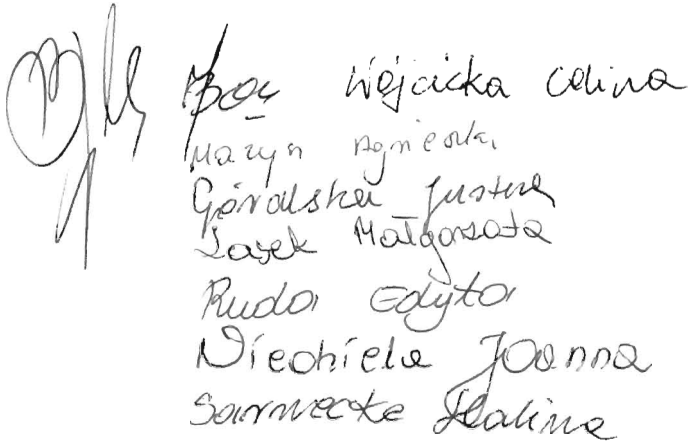 Wójcicka Celina
Mazyn Agnieszka
Góralska Justyna
Lasek Małgorzata
Ruda Edyta
Niedziela Joanna
Sarnecka Halina